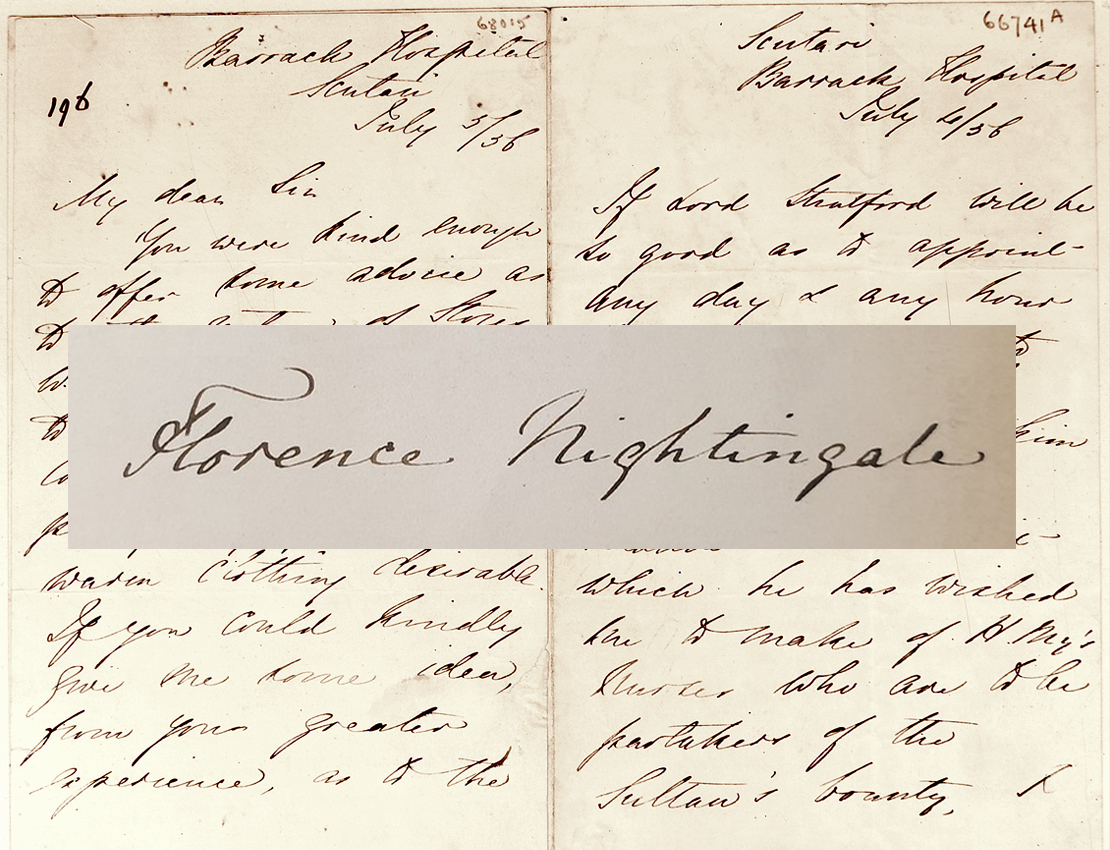 68015
Barrack Hospital
Scutari
196
July 5/56
My dear Sir
You were kind enough
to offer some advice as
to of Stores
warm clothing desirable.
If you could kindly
give me some idea,
from your greater
experience, as to the
66741A
Scutari
Barrack Hospital
July 4/56
If Lord Stratford will be
so good as to appoint
any day & any hour
him
which he has wished
me to make of H.My's
Nurses who are to be
partakers of the
Sultan's bounty, I
Florence Nightingale